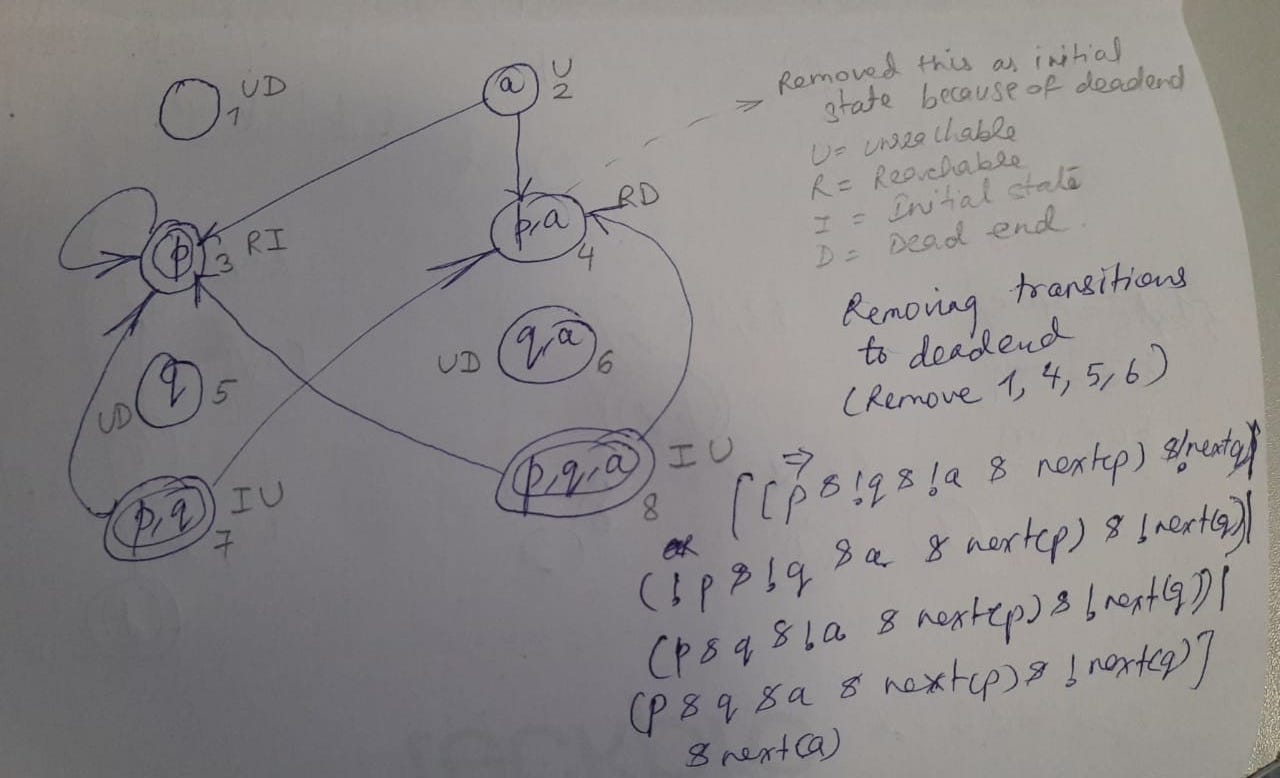 UD
1
a
U
2
Removed this as initial
state because of deadend
U = unreachable
R = Reachable
I = Initial state
D = Dead end.
p
3
RI
p,a
4
RD
Removing transitions
to deadend
(Remove 1, 4, 5, 6)
UD
q
5
UD
q,a
6
p,q
7
IU
p,q,a
8
IU
⇒
[(p & !q & !a & next(p) & !next(q)) |
(!p & !q & a & next(p) & !next(q)) |
(p & q & !a & next(p) & !next(q)) |
(p & q & a & next(p) & !next(q)]
& next(a)